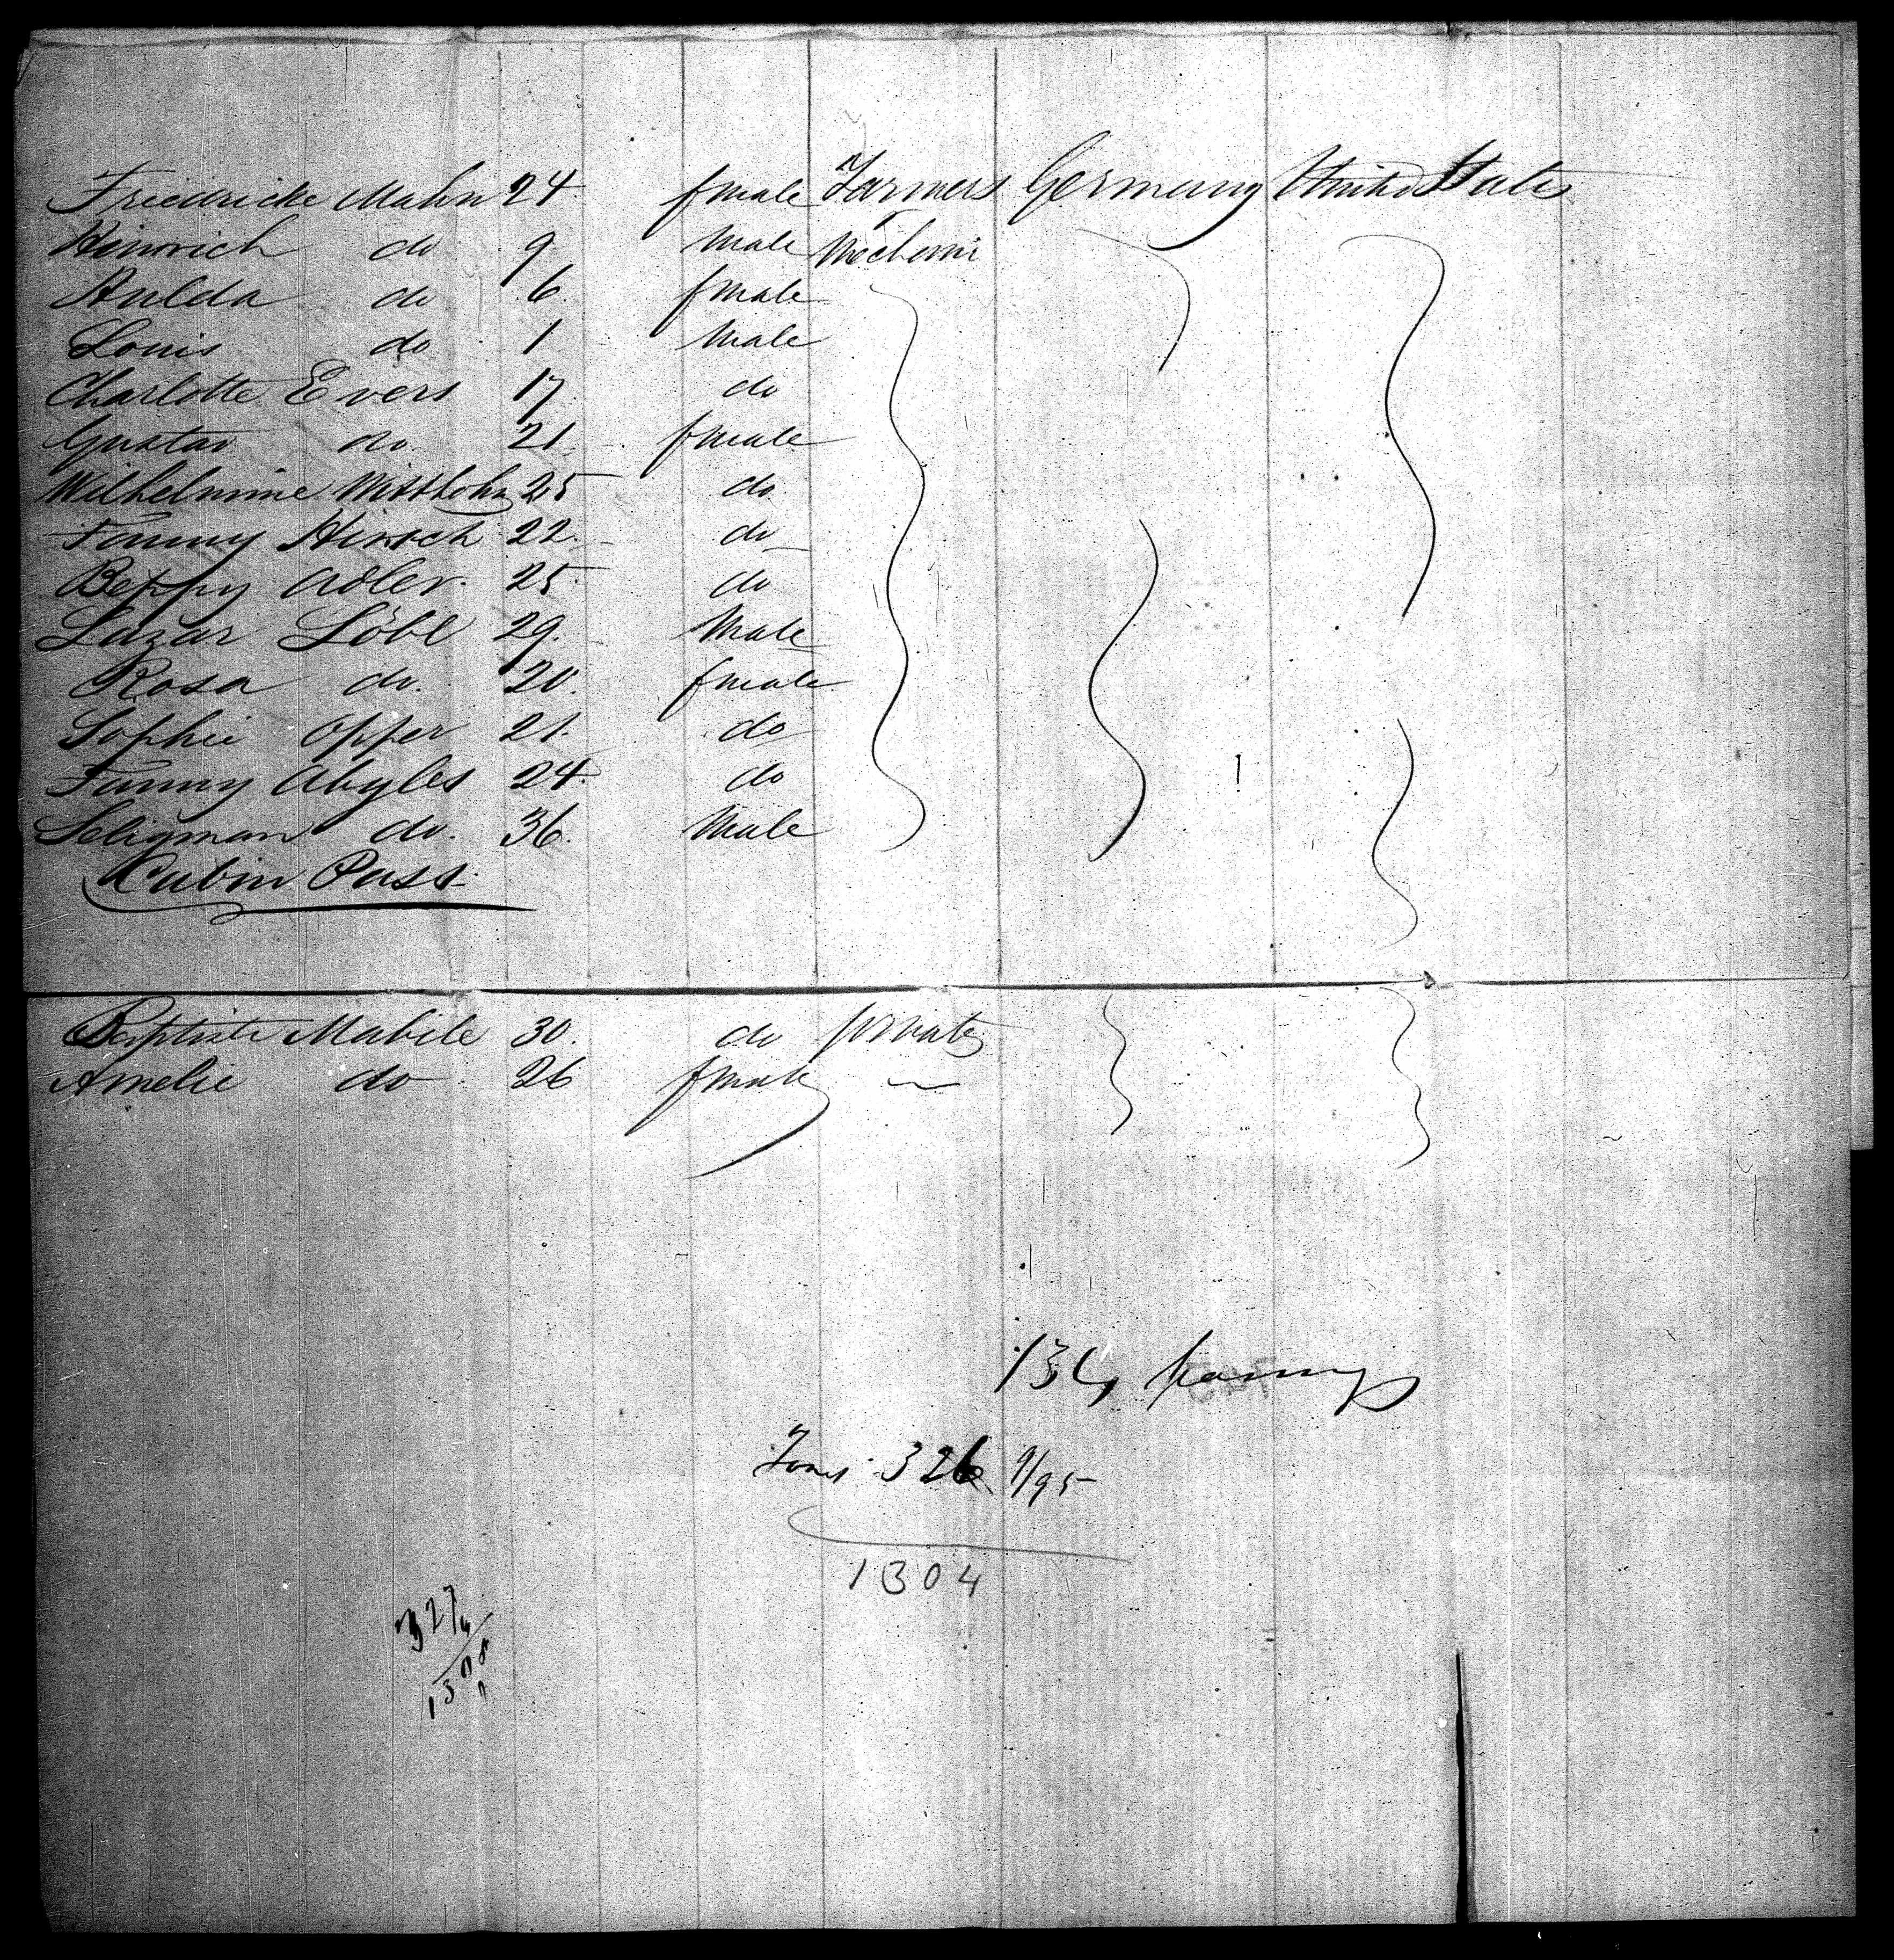 Friedricke Mahn 24 fmale Farmers Germany United States
Hinrich do 9 Male Mechani
Hulda do 6 fmale
Louis do 1 Male
Charlotte Evers 17 do
Gustav do 21 fmale
Wilhelmine 25 do
Fanny Hirsch 22 do
Beppy Adler 25 do
Lazar Löbl 29 Male
Rosa do 20 fmale
Sophie Opper 21 do
Fanny Abyles 24 do
Seligman do 36 Male
Cabin Pass
Baptiste Mabile 30 do private
Amelie do 26 fmale
Tons 326 9/95
1304